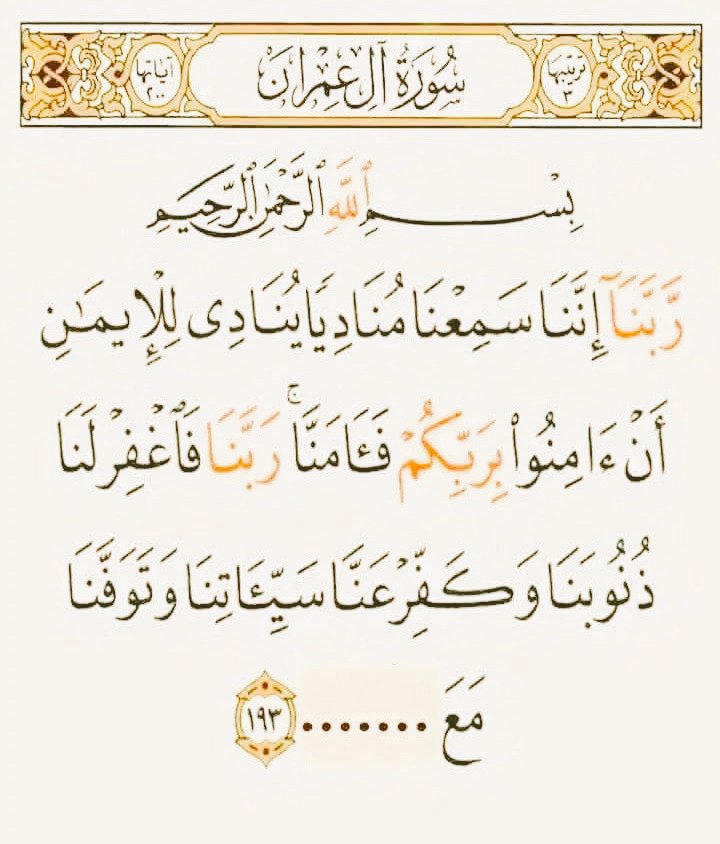 ترتيبها ٣ سُورَةُ آلِ عِمْرَان آياتها ٢٠٠
بِسْمِ ٱللَّهِ ٱلرَّحْمَٰنِ ٱلرَّحِيمِ
رَّبَّنَآ إِنَّنَا سَمِعْنَا مُنَادِيًا يُنَادِى لِلْإِيمَٰنِ
أَنْ ءَامِنُوا۟ بِرَبِّكُمْ فَـَٔامَنَّا ۚ رَبَّنَا فَٱغْفِرْ لَنَا
ذُنُوبَنَا وَكَفِّرْ عَنَّا سَيِّـَٔاتِنَا وَتَوَفَّنَا
مَعَ ....... ١٩٣